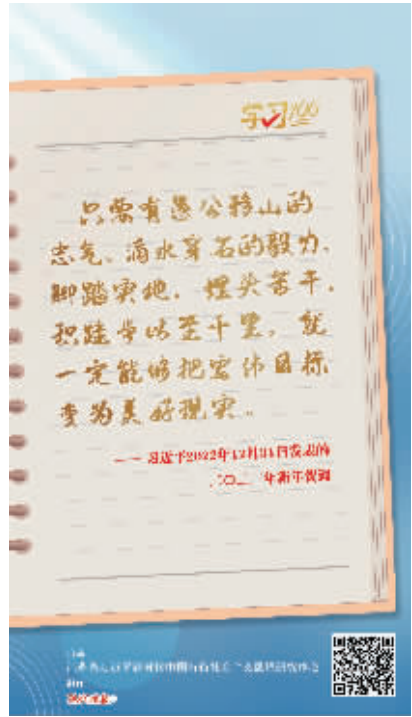 学习100
只要有愚公移山的
志气、滴水穿石的毅力，
脚踏实地，埋头苦干，
积跬步以至千里，就
一定能够把宏伟目标
变为美好现实。
——习近平2022年12月31日发表的
二〇二 年新年贺词